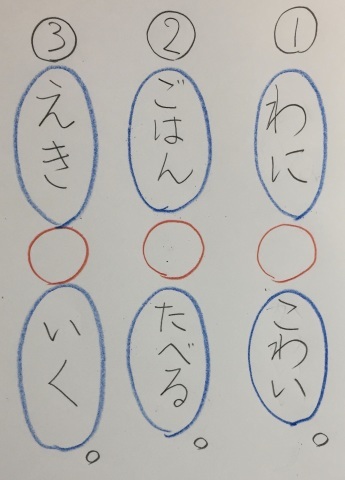 ① わに○こわい。
② ごはん○たべる。
③ えき○いく。